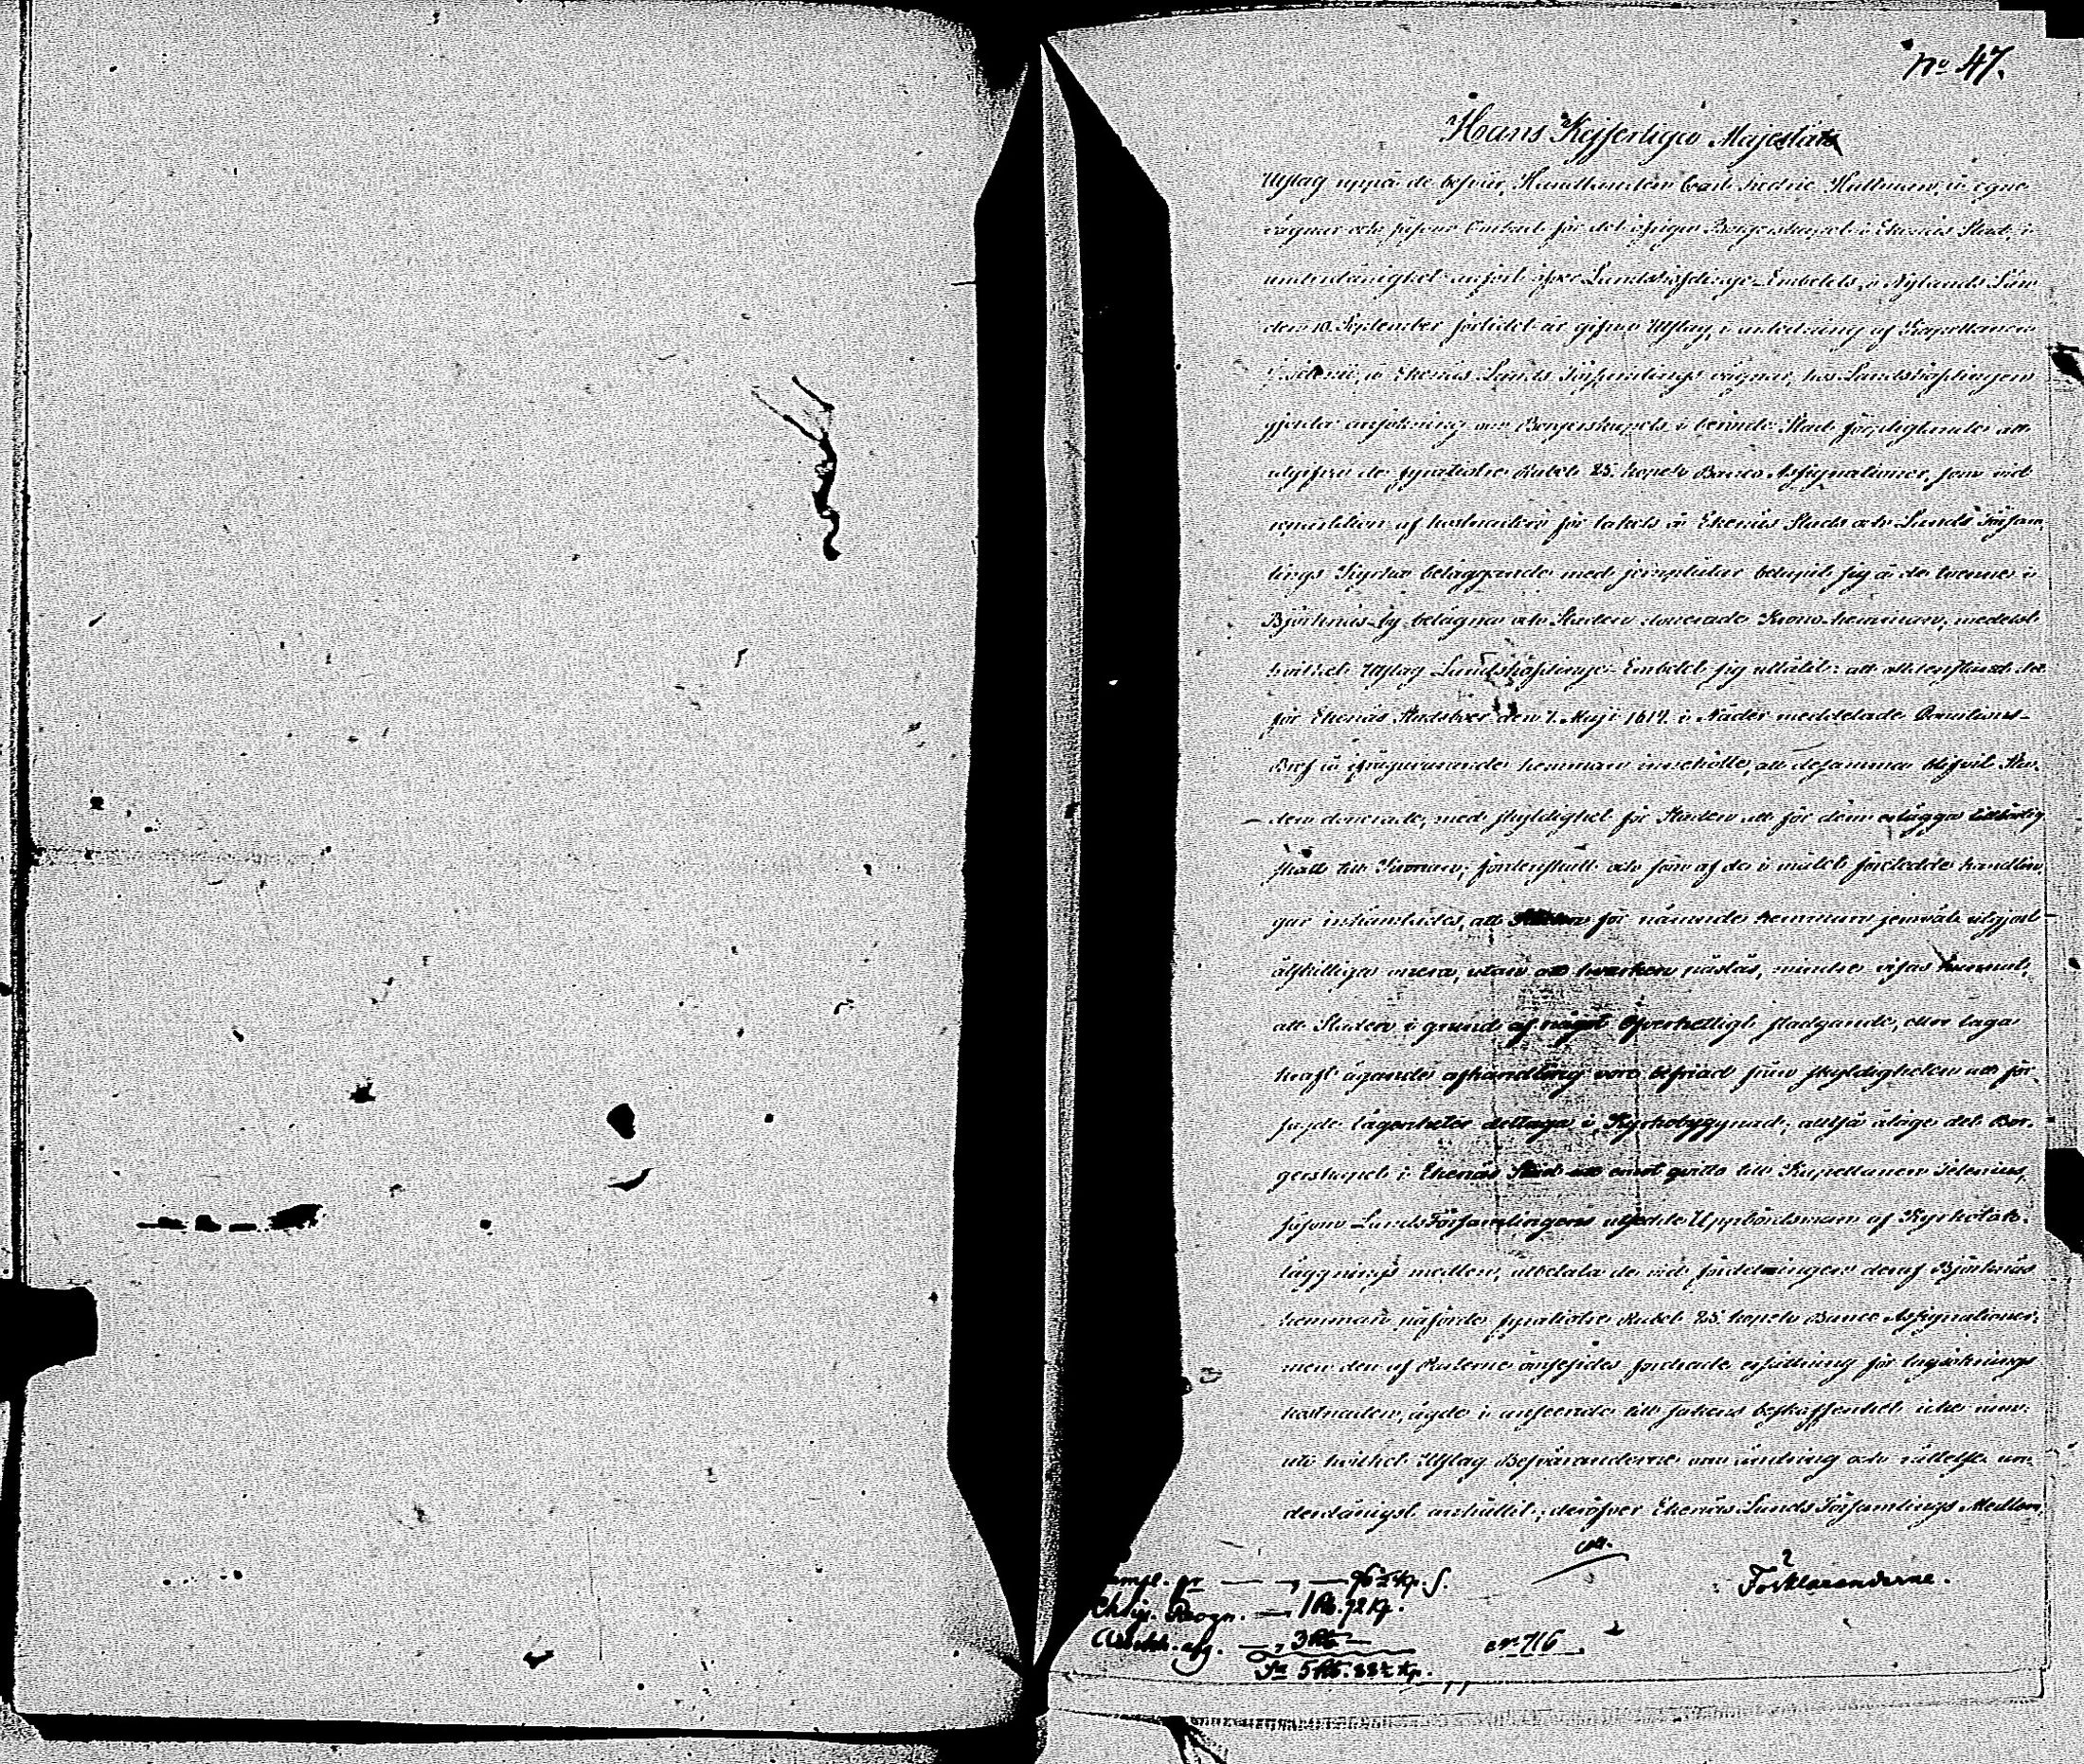 No 47.
Hans Kejserliga Majestäts
Utslag uppå de besvär, Handlanden Carl Fredric Hallman, å egne
vägnar och såsom Ombud för det öfriga Borgerskapet i Ekenäs Stad, i
underdånighet anfört öfver Landshöfdinge-Embetets i Nylands Län
den 10 September sistlidet år gifne Utslag, i anledning af Kapellanen
å Ekenäs Lands Församlings vägnar, hos Landshöfdingen
gjorde ansökning om Borgerskapets i berörde Stad förpligtande att
utgifva de fyratio Rubel 25 kopek Banco Assignationer, som vid
repartition af kostnaden för takets å Ekenäs Stads och Lands Försam-
lings Kyrka beläggande med jernplåtar belupit sig å de tvenne i
Björknäs by belägna och Staden donerade Krono hemman, medelst
hvilket Utslag Landshöfdinge-Embetet sig utlåtit: att alldenstund det
för Ekenäs Stadsboer den 7 Maji 1617 i Nåder meddelade Donations-
Bref å ifrågavarande hemman innehölle, att desamma blifvit Sta-
den donerade, med skyldighet för Staden att för dem erlägga tillbörlig
skatt till Kronan; fördenskull och som af de i målet företedde handlin-
gar inhämtades, att Staden för nämnde hemman jemväl utgjort
åtskilliga onera, utan att hvarken påstås, mindre visas kunnat,
att Staden i grund af något Öfverhetligt stadgande, eller laga
kraft ägande afhandling vore befriad från skyldigheten att för
sagde lägenheter deltaga i Kyrkobyggnad; alltså ålåge det Bor-
gerskapet i Ekenäs Stad att emot qvitto till Kapellanen
såsom Lands Församlingens utsedde Uppbördsman af Kyrkotak-
läggnings medlen, utbetala de vid fördelningen deraf Björknäs
hemman påförde fyratio Rubel 25 kopek Banco Assignationer;
men den af Parterne ömsesides fordrade ersättning för lagsöknings
kostnaden, ägde i anseende till sakens beskaffenhet icke rum;
uti hvilket Utslag Besväranderne om ändring och rättelse un-
derdånigst anhållit; deröfver Ekenäs Lands Församlings Medlem-
Förklaranderne.
96½ Kp. S.
Chart. Recogn. — 1 Rb. 92 Kp.
— 3 Rb. —
Sa 5 Rb. 88½ Kp.
No 716